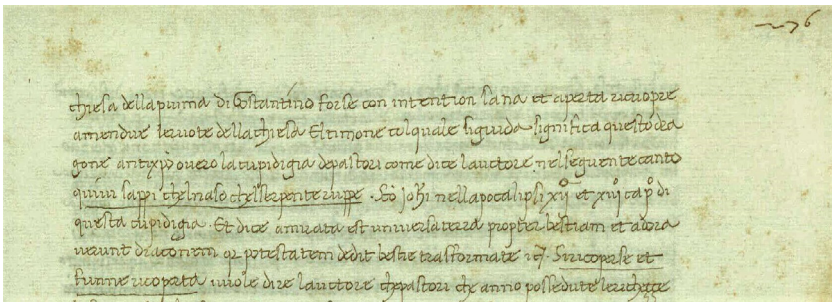 76
chiesa della piuma di Costantino forse con intention sana et aperta ricuopre
amendue le ruote della chiesa El timone colquale siguida significa questo dra
gone antixpo overo la cupidigia depastori come dice lauctore nelseguente canto
quivi sappi chelvaso chelserpente ruppe . Sco johi nellapocalipsi xijº et xvijº capº di
questa cupidigia . Et dice amirata est universa terra propter bestiam et adora
verunt draconem qr potestatem dedit bestie trasformate
Siricoperse et
funne ricoperta vuole dire lauctore chepastori che anno possedute lericheççe